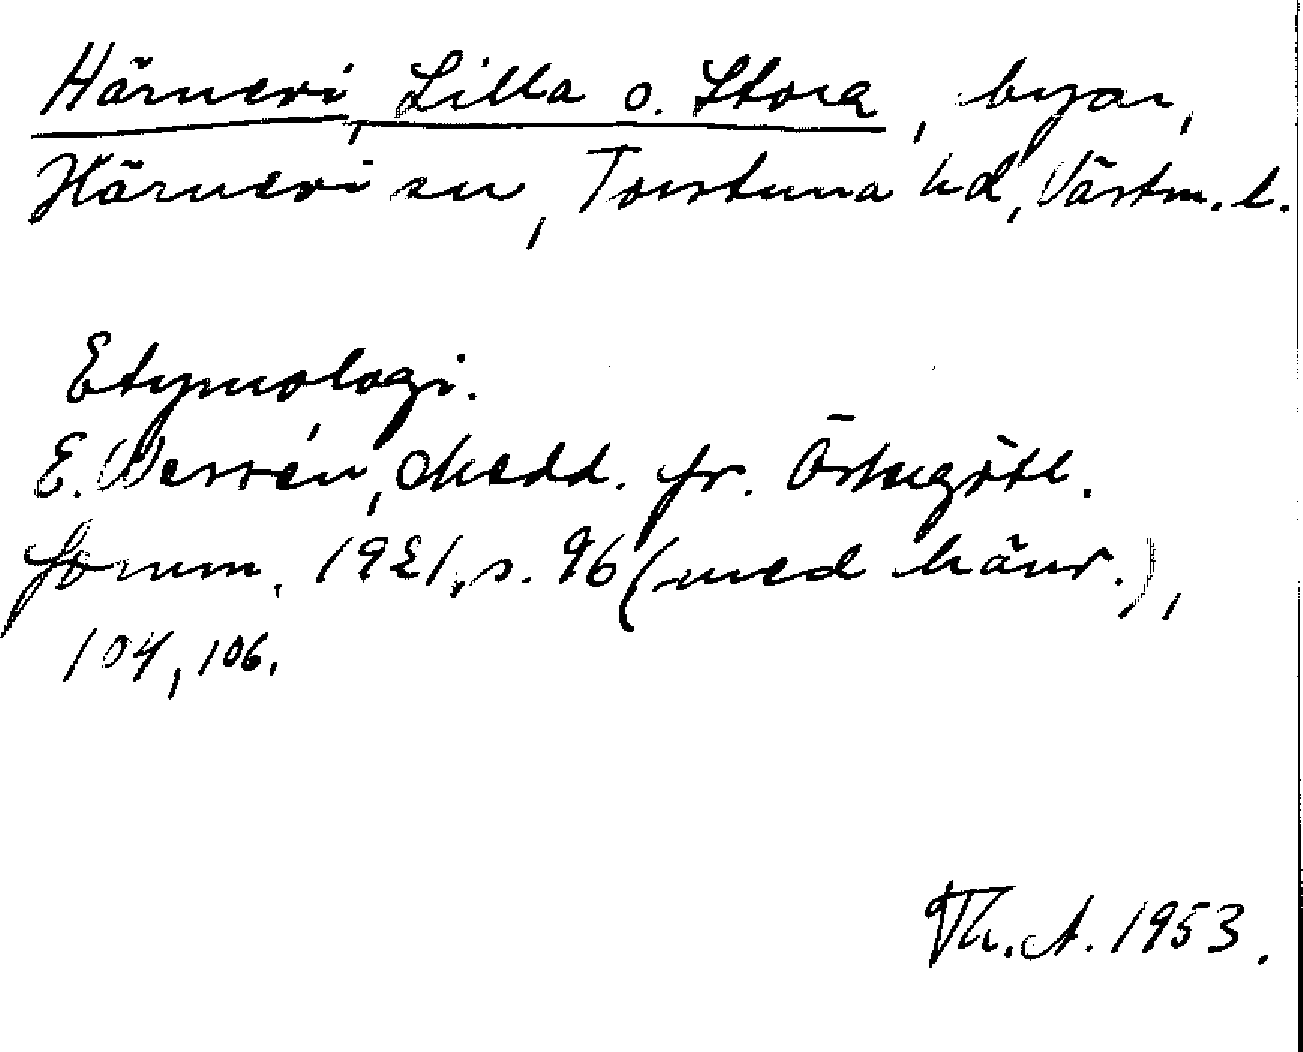 Härnevi, Lilla o. Stora, byar,
Härnevi sn, Torstuna hd, Västm. l.
Etymologi.
E. Wessén, Medd. fr. Östergötl.
fornm. 1921, s. 96 (med hänv.),
104, 106.
Th. A. 1953.